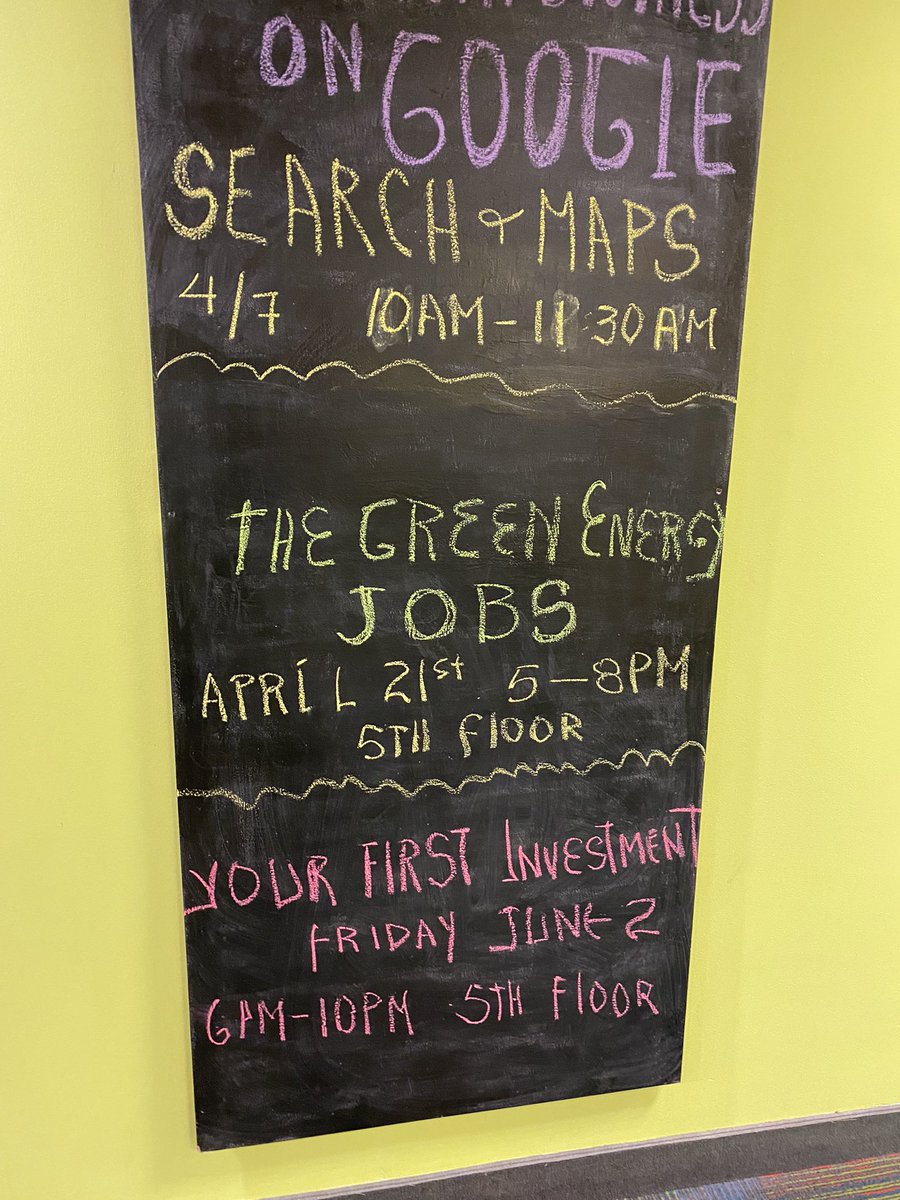 ON GOOGIE
SEARCH & MAPS
4/7 10AM-11:30AM
THE GREEN ENERGY
JOBS
APRIL 21st 5-8PM
5TH FlOOR
YOUR FIRST INVESTMENT
FRIDAY JUNE 2
6PM-10PM 5TH FlOOR